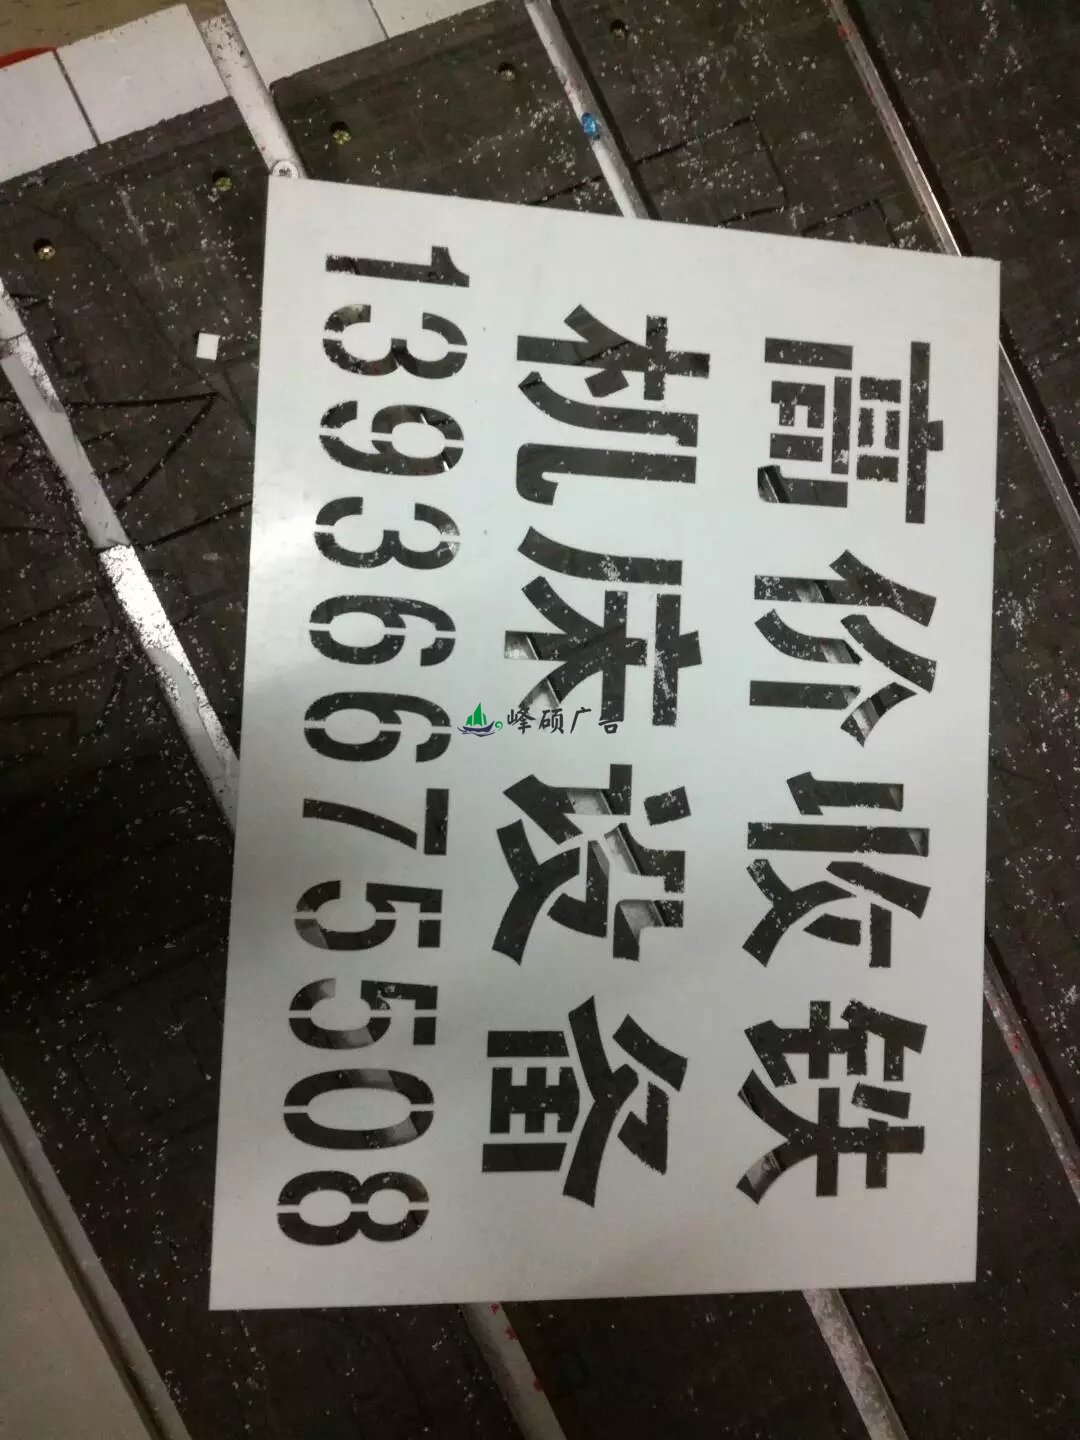 高价收铁
机床设备
13936675508
峰硕广告